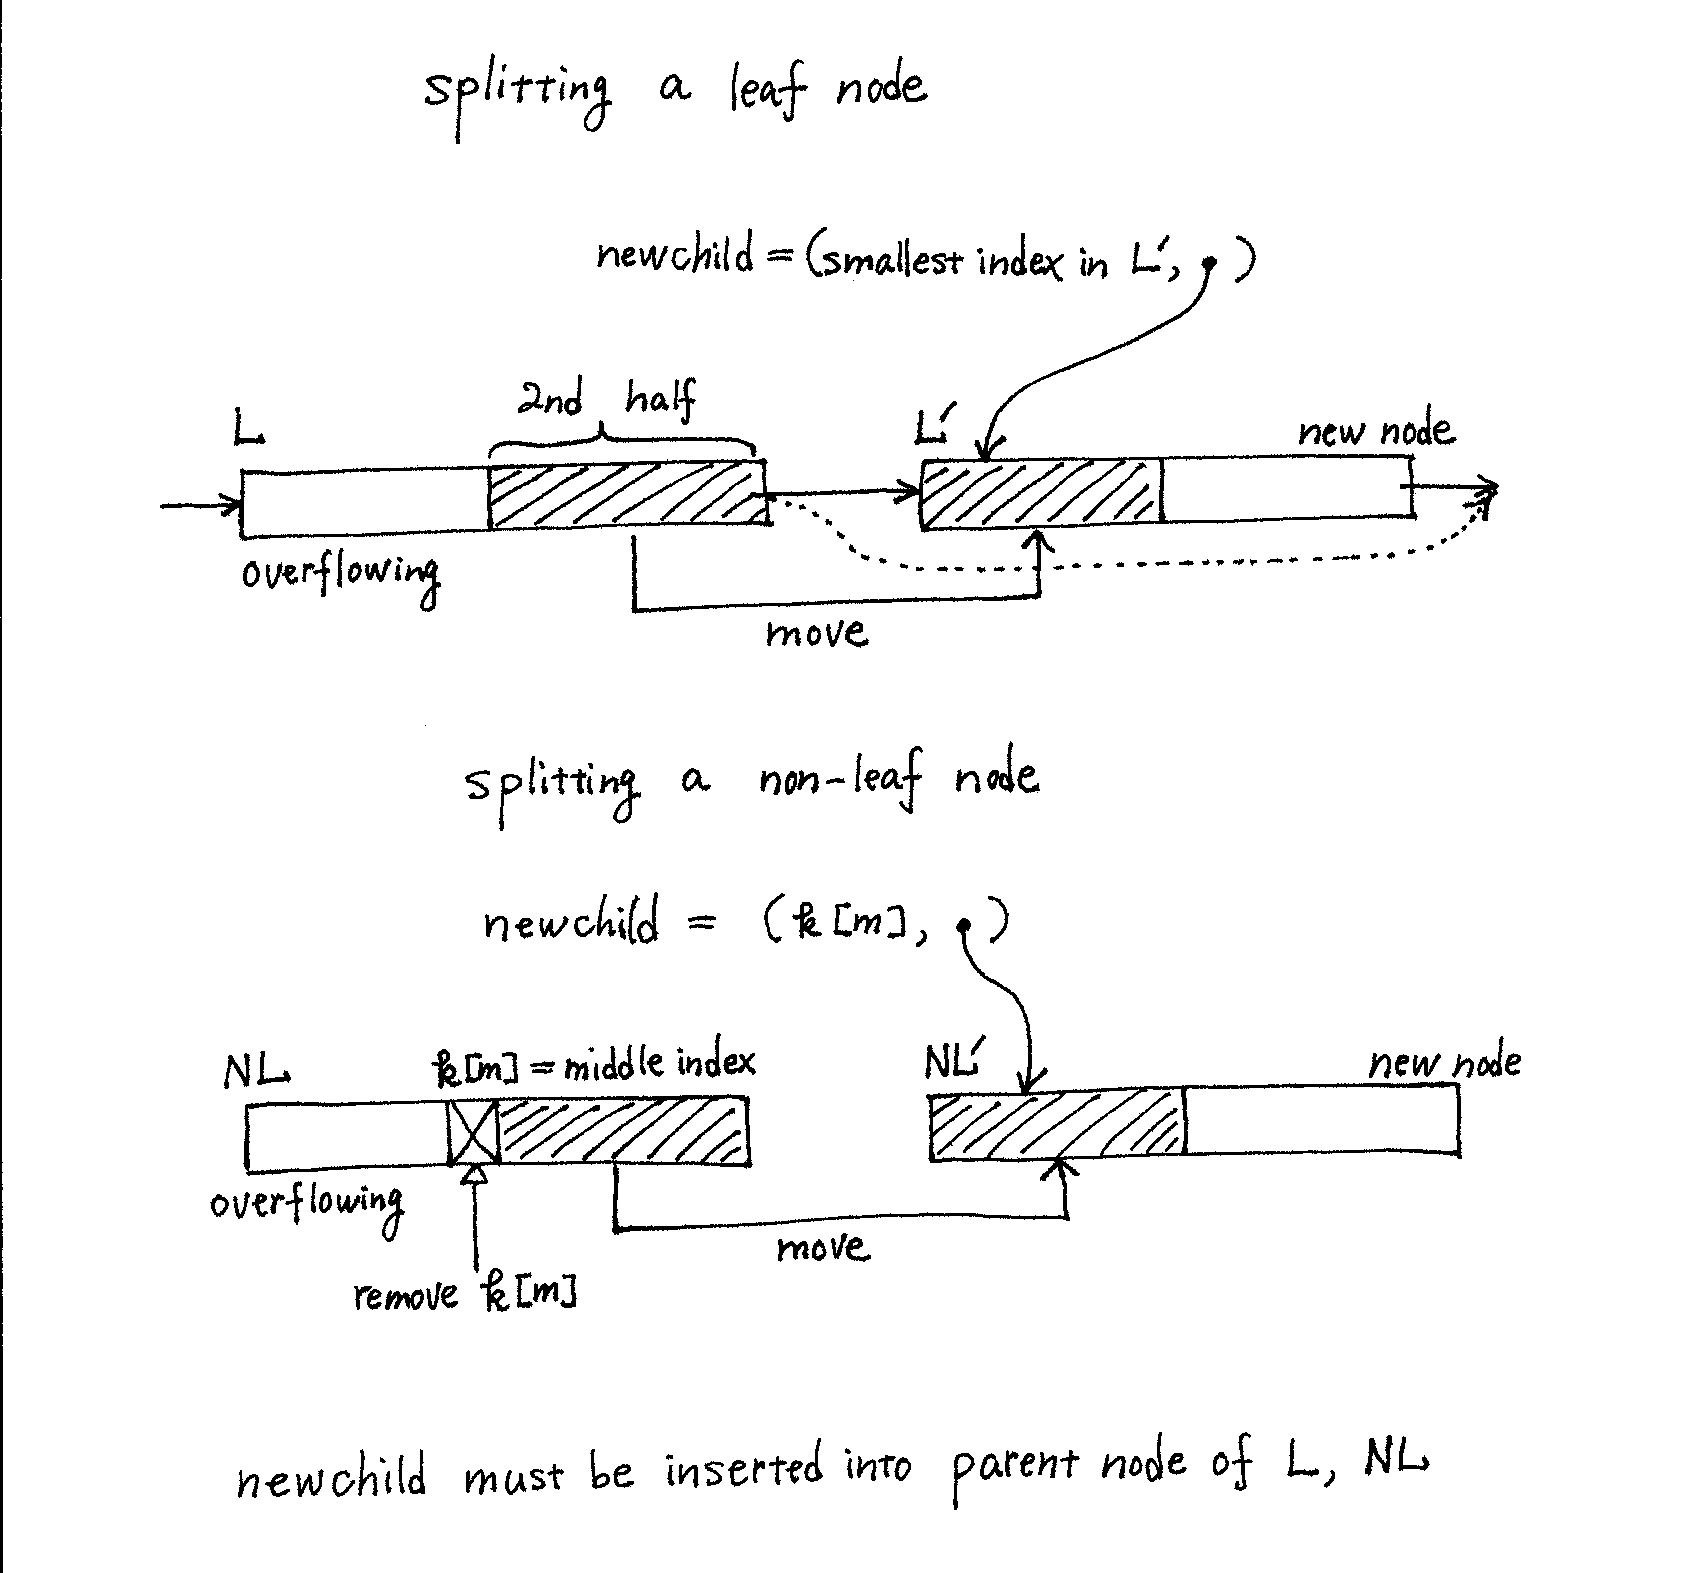 splitting a leaf node
newchild = (smallest index in L′, )
2nd half
L
L′
new node
overflowing
move
splitting a non-leaf node
newchild = (k[m], )
NL
k[m] = middle index
NL′
new node
overflowing
move
remove k[m]
newchild must be inserted into parent node of L, NL